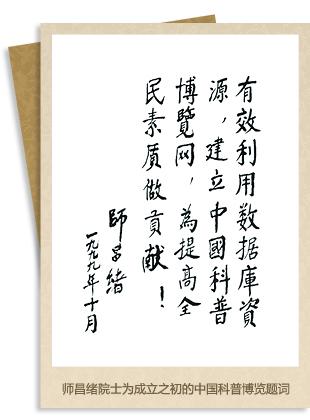 有效利用数据庫資
源，建立中國科普
博覽网，為提高全
民素质做貢献！
師昌緒
一九九九年十月
师昌绪院士为成立之初的中国科普博览题词